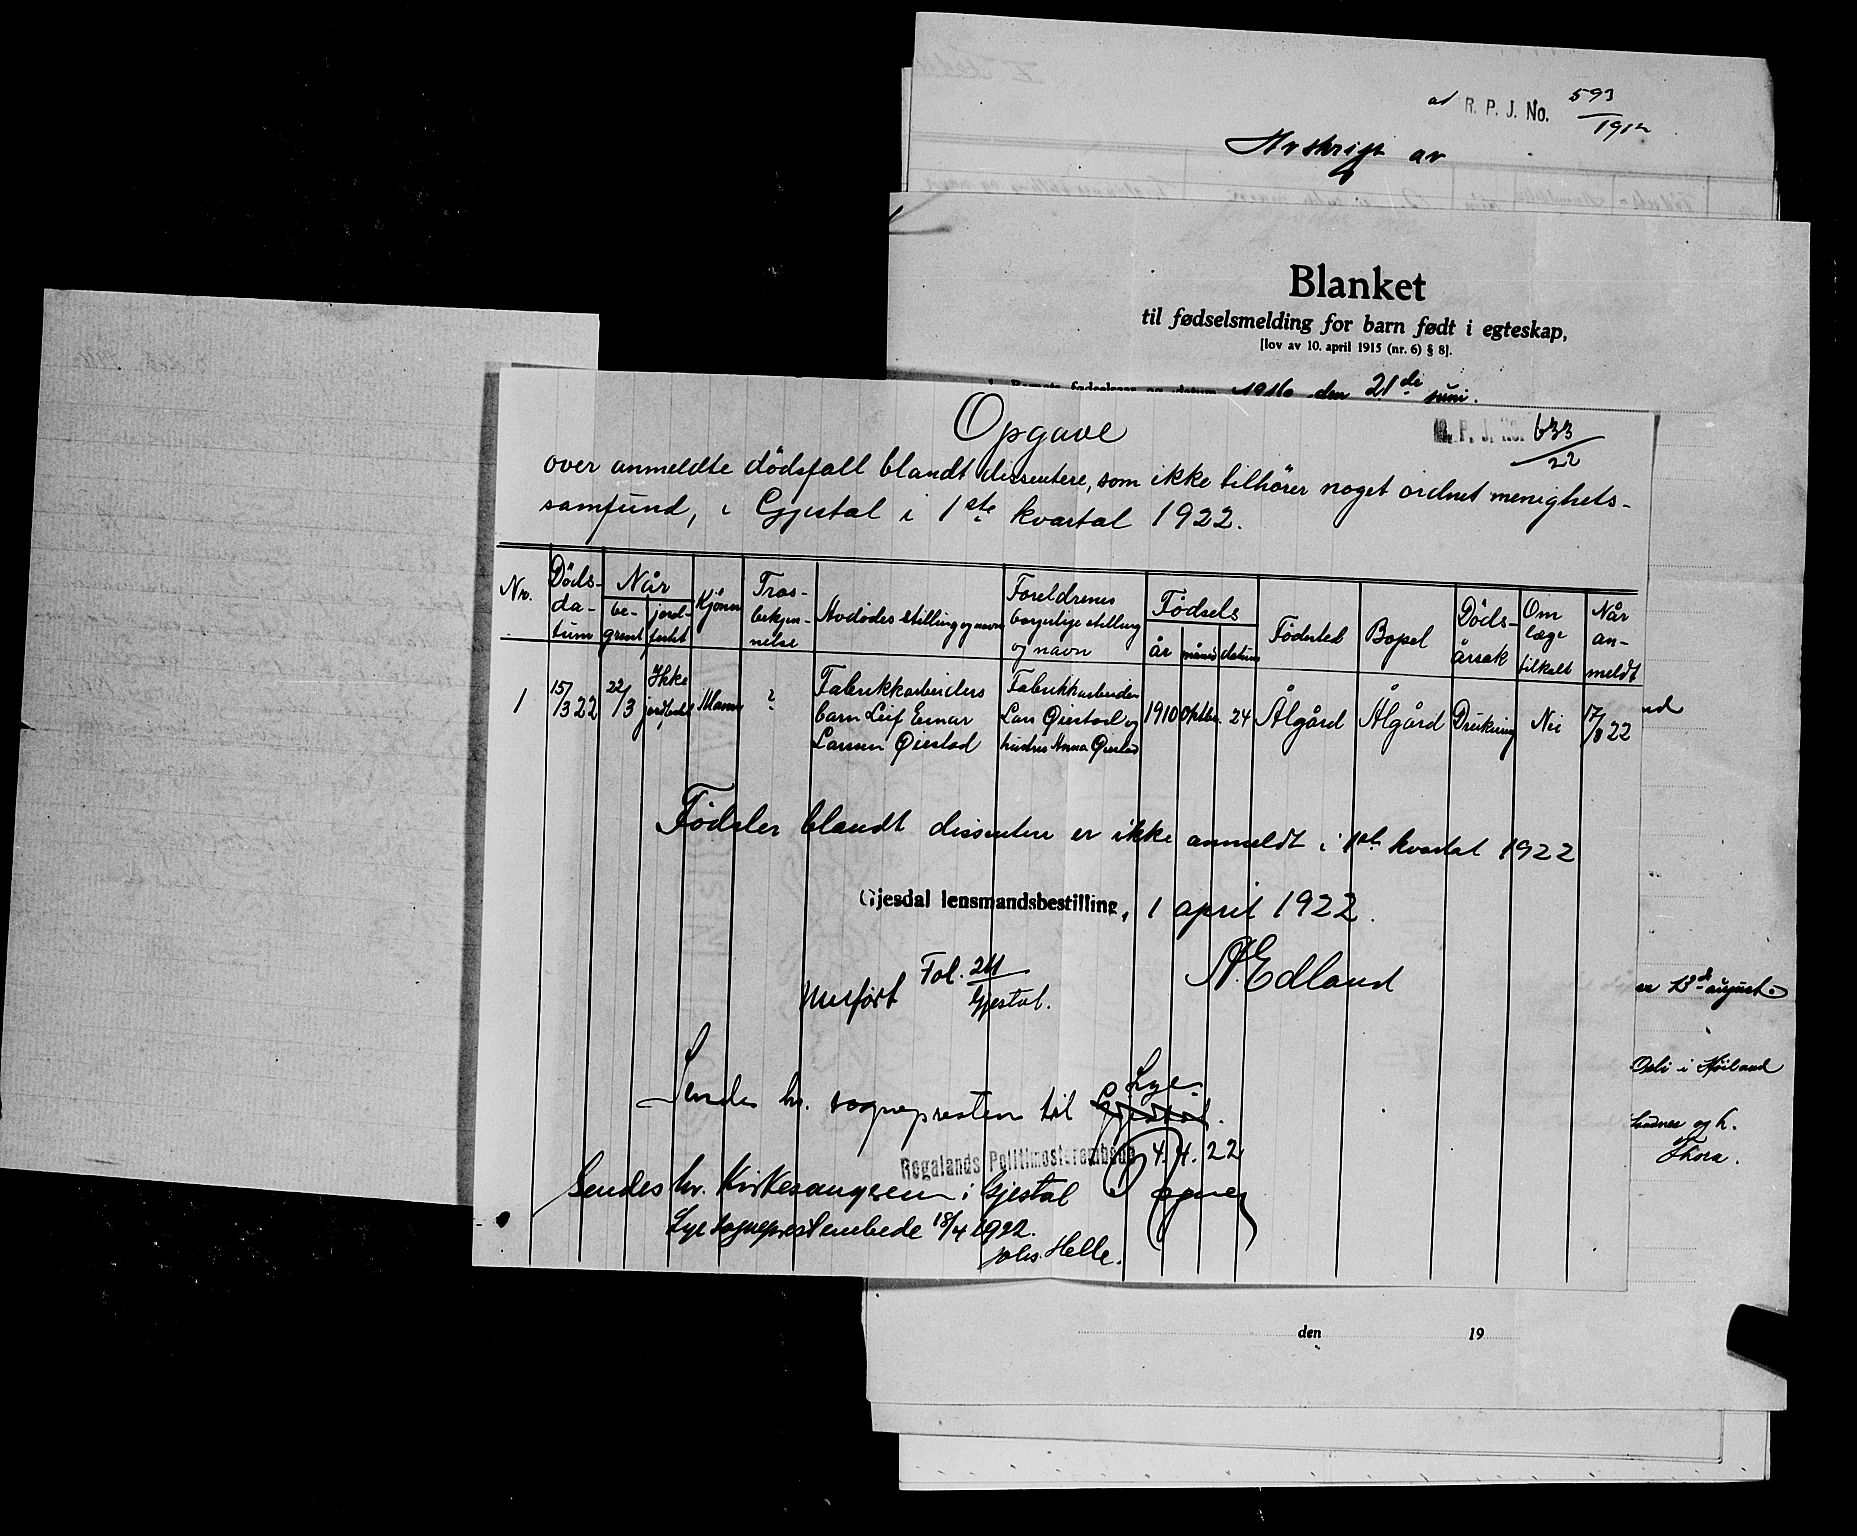 ad R. P. J. No. 593/1912
Avskrift av
Blanket
til fødselsmelding for barn født i egteskap,
[lov av 10. april 1915 (nr. 6) § 8].
1916 den 21de juni.
Opgave
R. P. J. No. 633/22
over anmeldte dödsfall blandt dissentere, som ikke tilhører noget ordnet menighets-
samfund, i Gjestal i 1ste kvartal 1922.
Nr. | Döds-datum | Når be-grent | Når jord-festet | Kjönn | Tros-bekjen-nelse | Avdödes stilling og navn | Foreldrenes borgerlige stilling og navn | Fødsels år | måned | datum | Födested | Bopel | Döds-årsak | Om læge tilkalt | Når an-meldt
1 | 15/3 22 | 22/3 | Ikke jordfestet | Mann | ? | Fabrikkarbeiders barn Leif Einar Larsen Øiestad | Fabrikkarbeider Lars Øiestad og hustru Anna Øiestad | 1910 | Oktbr. | 24 | Ålgård | Ålgård | Drukning | Nei | 17/3 22
Födsler blandt dissentere er ikke anmeldt i 1ste kvartal 1922
Gjesdal lensmandsbestilling, 1 april 1922.
A. Edland
Fol. 211
Gjestal.
Sendes hr. sognepresten til Gjestal. Lye
Rogalands Politimesterembede 4.4.22
Sendes hr. Kirkesangeren i Gjestal
Lye sogneprestembede 18/4 1922.
Johs. Helle.
13de august.
i Høiland
og h.
Thora.
den 19